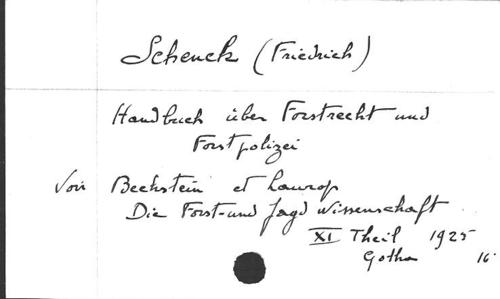 Schenck (Friedrich)
Handbuch über Forstrecht und
Forstpolizei
Voir Bechstein et Laurop
Die Forst- und Jagd Wissenschaft
XI Theil 1925
Gotha 16°